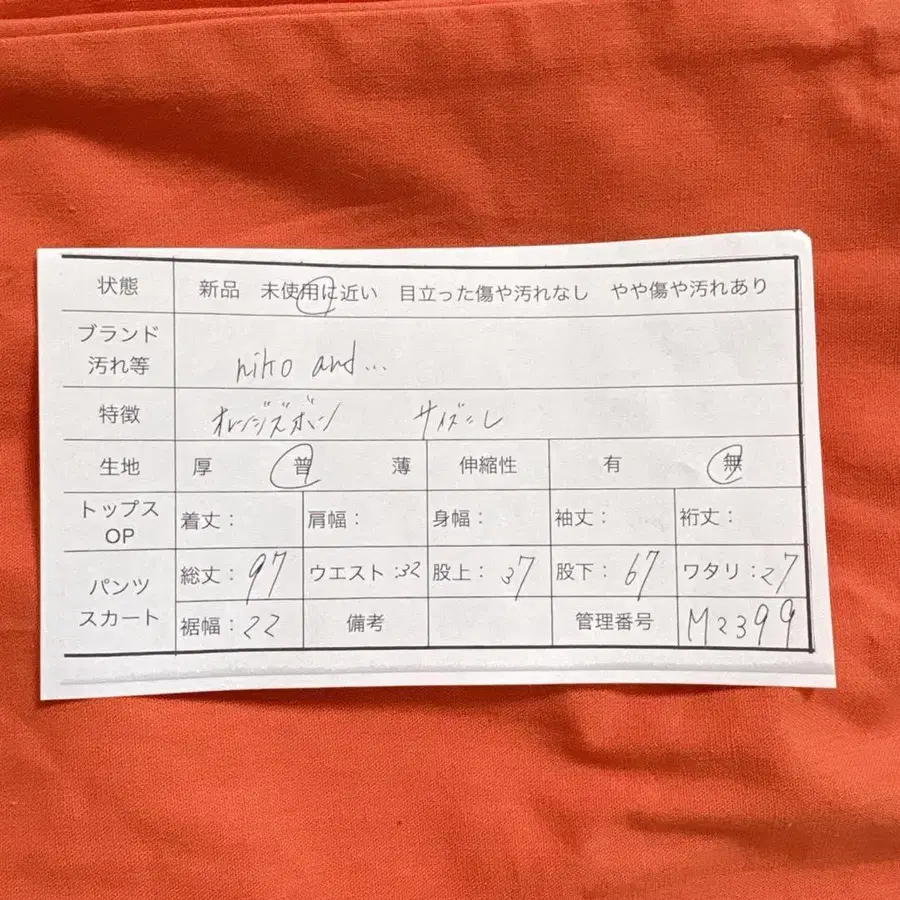 状態 新品 未使用に近い 目立った傷や汚れなし やや傷や汚れあり
ブランド
汚れ等 niko and...
特徴 オレンジズボン サイズ:L
生地 厚 普 薄 伸縮性 有 無
トップス
OP 着丈: 肩幅: 身幅: 袖丈: 裄丈:
パンツ
スカート 総丈:97 ウエスト:32 股上:37 股下:67 ワタリ:27
裾幅:22 備考 管理番号 M2399